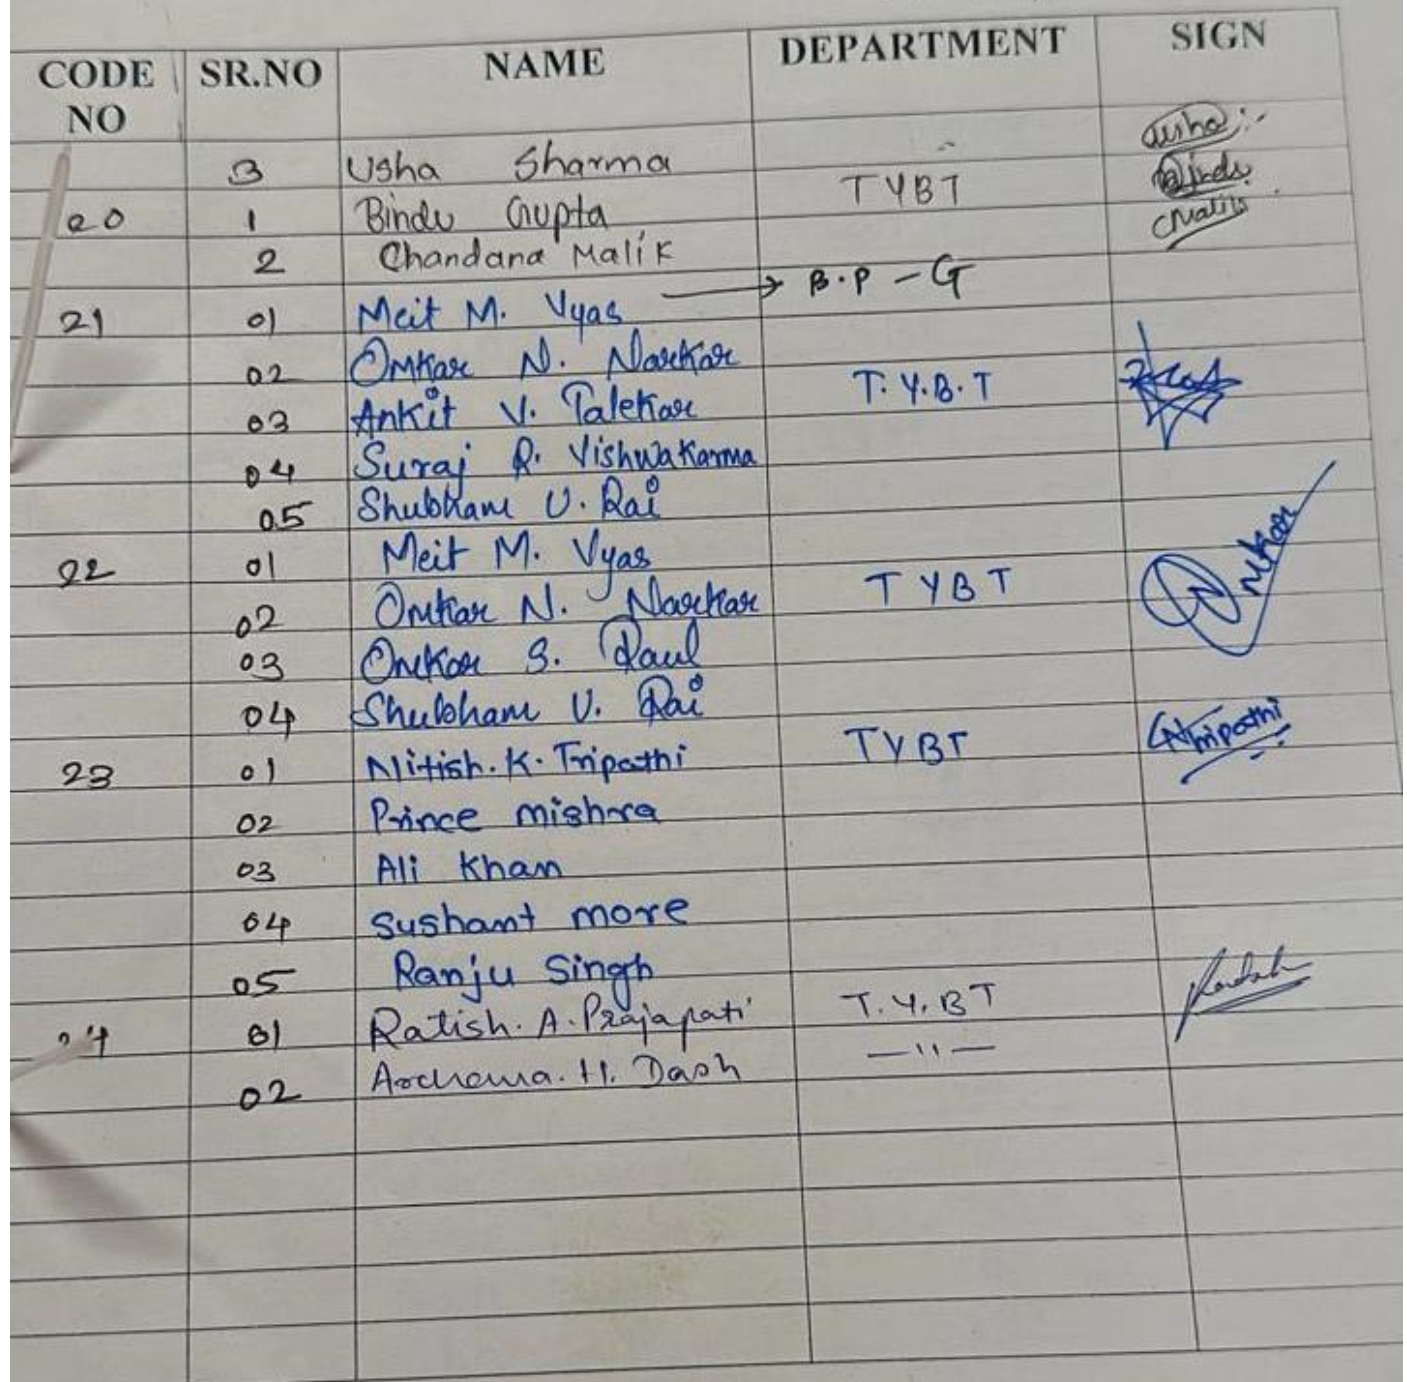 CODE NO SR.NO NAME DEPARTMENT SIGN
3 Usha Sharma Usha
20 1 Bindu Gupta TYBT Bindu
2 Chandana Malik CMalik
21 01 Meit M. Vyas → B.P - G
02 Omkar N. Narkar
03 Ankit V. Talekar T.Y.B.T
04 Suraj R. Vishwakarma
05 Shubham U. Rai
22 01 Meit M. Vyas
02 Omkar N. Narkar TYBT Omkar
03 Omkar S. Raul
04 Shubham U. Rai
23 01 Nitish.K.Tripathi TYBT NTripathi
02 Prince mishra
03 Ali Khan
04 Sushant more
05 Ranju Singh
24 01 Ratish.A.Prajapati T.Y.BT
02 Archana.H.Dash —11—